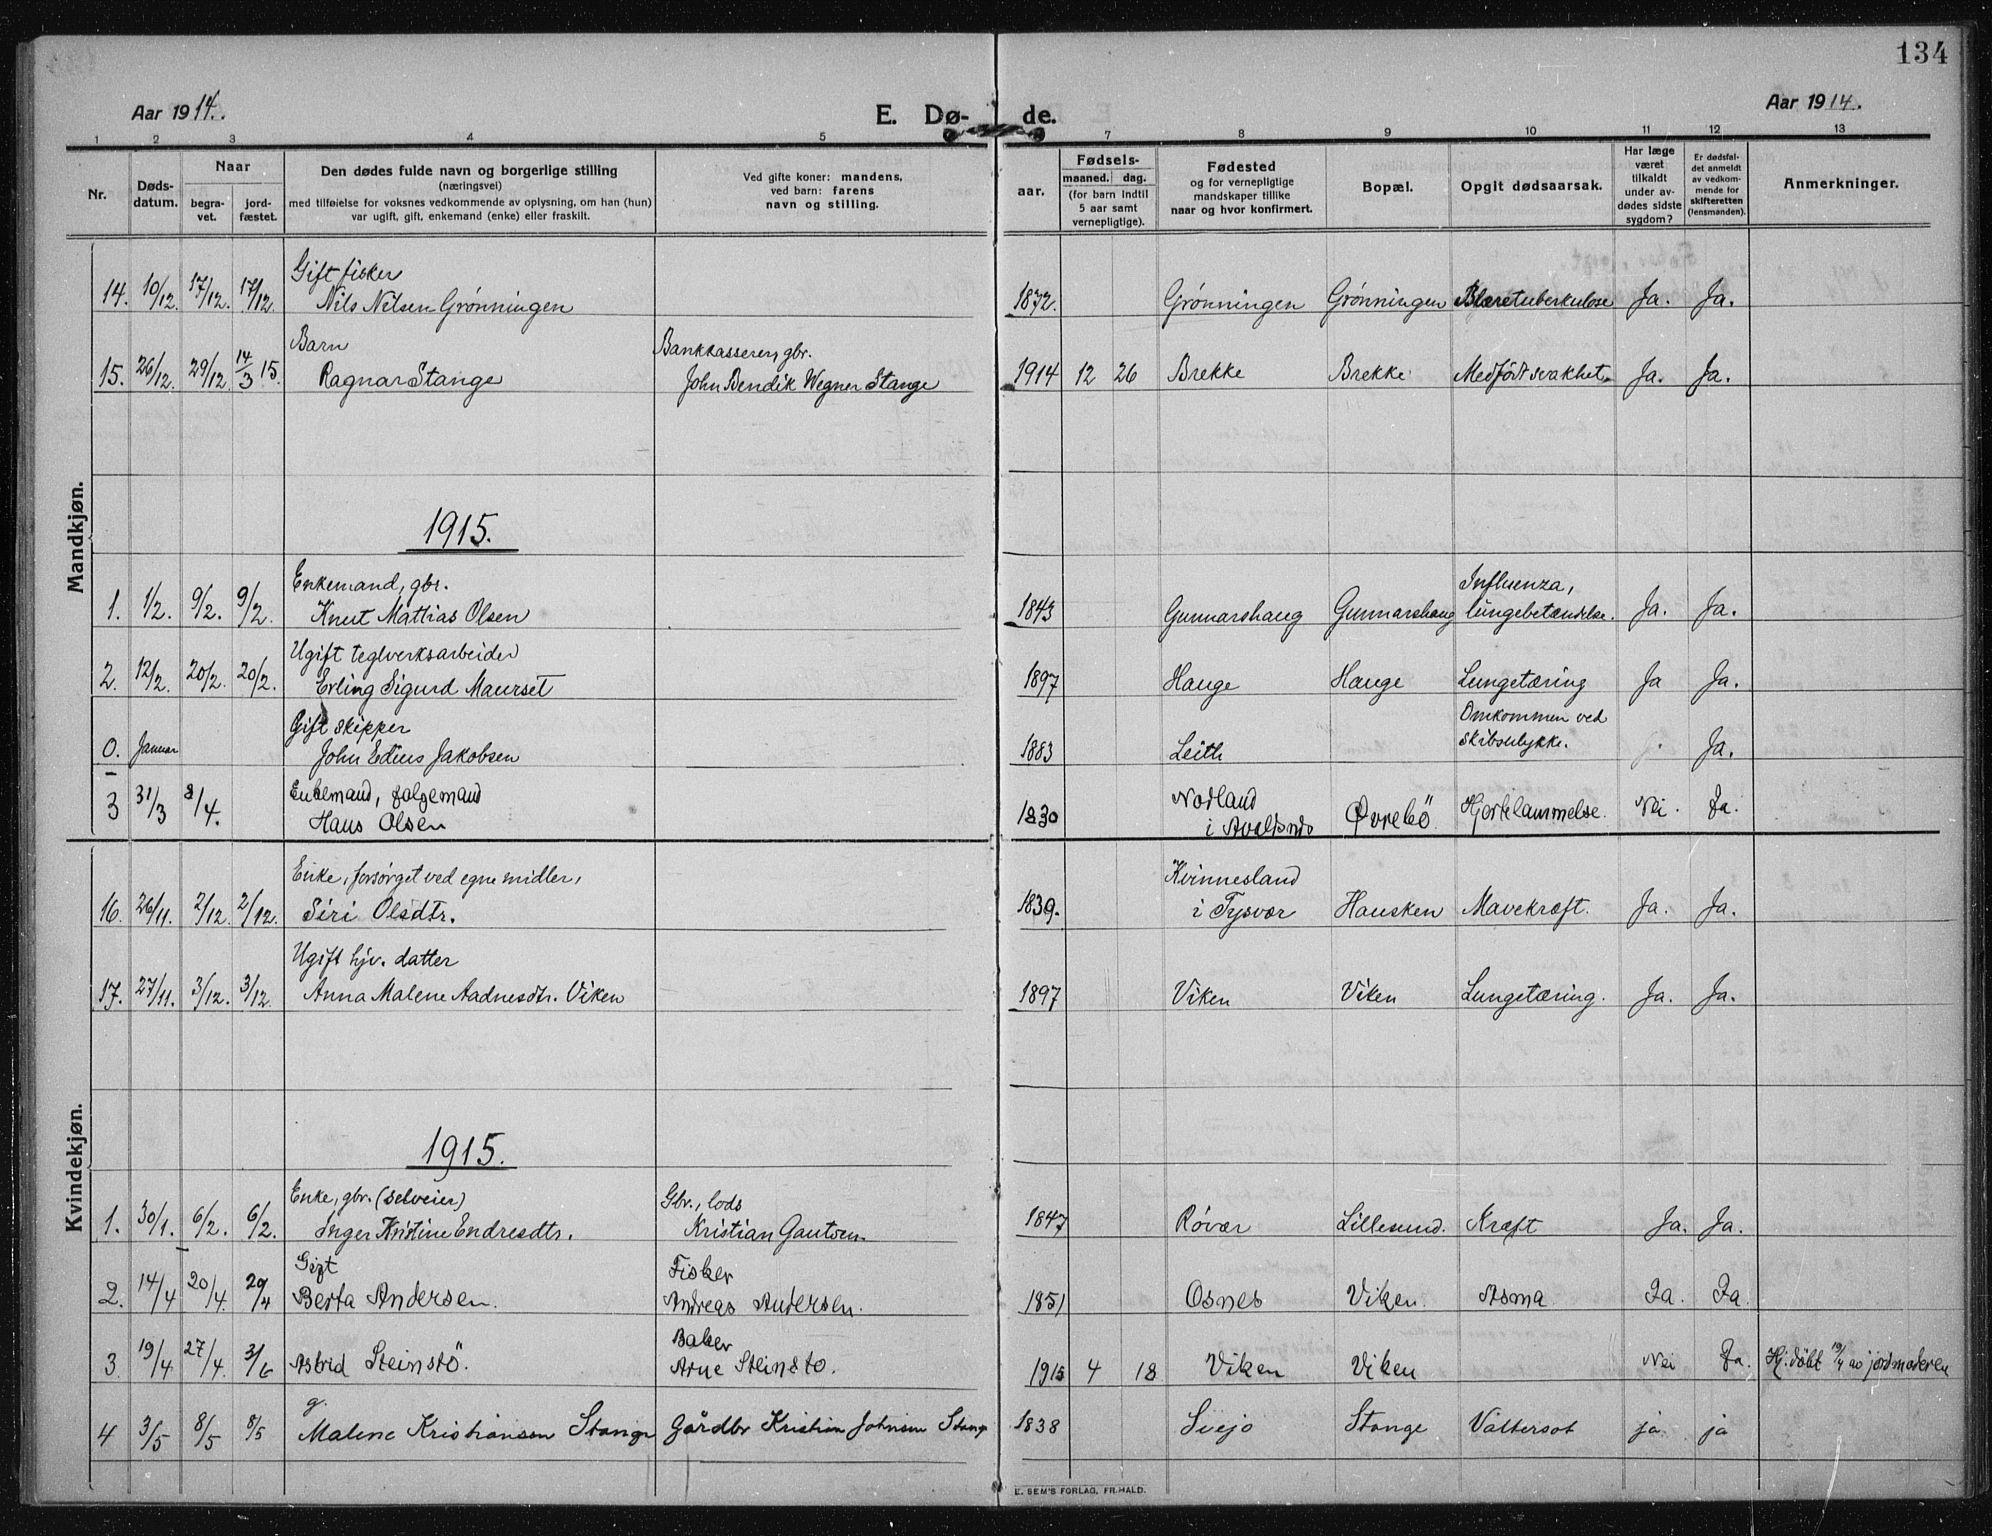 134
Aar 1914.
E. Dø-
de.
Aar 1914.
1 2 3 4 5 7 8 9 10 11 12 13
Nr.
Døds-
datum.
Naar
begra-
vet.
jord-
fæstet.
Den dødes fulde navn og borgerlige stilling
(næringsvei)
med tilføielse for voksnes vedkommende av oplysning, om han (hun)
var ugift, gift, enkemand (enke) eller fraskilt.
Ved gifte koner: mandens,
ved barn: farens
navn og stilling.
aar.
Fødsels-
maaned. dag.
(for barn indtil
5 aar samt
vernepligtige).
Fødested
og for vernepligtige
mandskaper tillike
naar og hvor konfirmert.
Bopæl.
Opgit dødsaarsak.
Har læge
været
tilkaldt
under av-
dødes sidste
sygdom?
Er dødsfal-
det anmeldt
av vedkom-
mende for
skifteretten
(lensmanden).
Anmerkninger.
Mandkjøn.
Gift fisker
14. 10/12. 17/12. 17/12. Nils Nilsen Grønningen 1872. Grønningen Grønningen Blæretuberkulose Ja. Ja.
Barn Bankkasserer, gbr.
15. 26/12. 29/12. 14/3 15. Ragnar Stange John Bendik Wegner Stange 1914 12 26 Brekke Brekke Medfødt svakhet. Ja. Ja.
1915.
Enkemand, gbr. Influenza,
1. 1/2. 9/2. 9/2. Knut Mathias Olsen 1843 Gunnarshaug Gunnarshaug lungebetændelse. Ja. Ja.
Ugift teglverksarbeider
2. 12/2. 20/2. 20/2. Erling Sigurd Maurset 1897 Hauge Hauge Lungetæring Ja Ja.
Gift skipper Omkommen ved
0. Januar John Edius Jakobsen 1883 Leith skibsulykke. Ja.
Enkemand, følgemand Nodland
3 31/3 8/4. Hans Olsen 1830 i Avaldsnes Øvrebö Hjertelammelse. Nei. Ja.
Kvindekjøn.
Enke, forsørget ved egne midler, Kvinnesland
16. 26/11. 2/12. 2/12. Siri Olsdtr. 1839. i Tysvær Hausken Mavekræft. Ja. Ja.
Ugift hjv. datter
17. 27/11. 3/12. 3/12. Anna Malene Aadnesdtr. Viken 1897 Viken Viken Lungetæring. Ja. Ja.
1915.
Enke, gbr. (selveier) Gbr., lods
1. 30/1. 6/2. 6/2. Inger Kristine Endresdtr. Kristian Gautsen 1847 Røvær Lillesund. Kræft Ja. Ja.
Gift Fisker
2. 14/4 20/4. 20/4 Berta Andersen. Andreas Andersen. 1851 Osnes Viken. Asma Ja. Ja.
Baker
3 19/4 27/4 3/6 Astrid Steinstö. Arne Steinstö. 1915 4 18 Viken Viken Nei Ja. Hj.döbt 19/4 av jordmoderen
g.
4 3/5 8/5 8/5 Malene Kristiansen Stange Gårdbr Kristian Johnsen Stange 1838 Svejo Stange Vattersot ja ja
E. SEM'S FORLAG, FR.HALD.